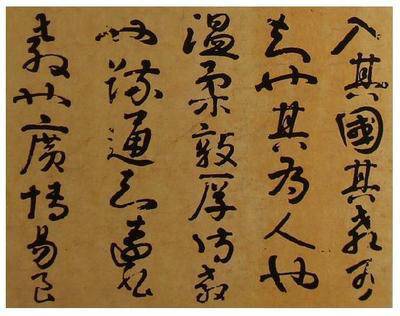 入其國其教可
知也其為人也
温柔敦厚詩教
也疏通知遠書
教也廣博易良